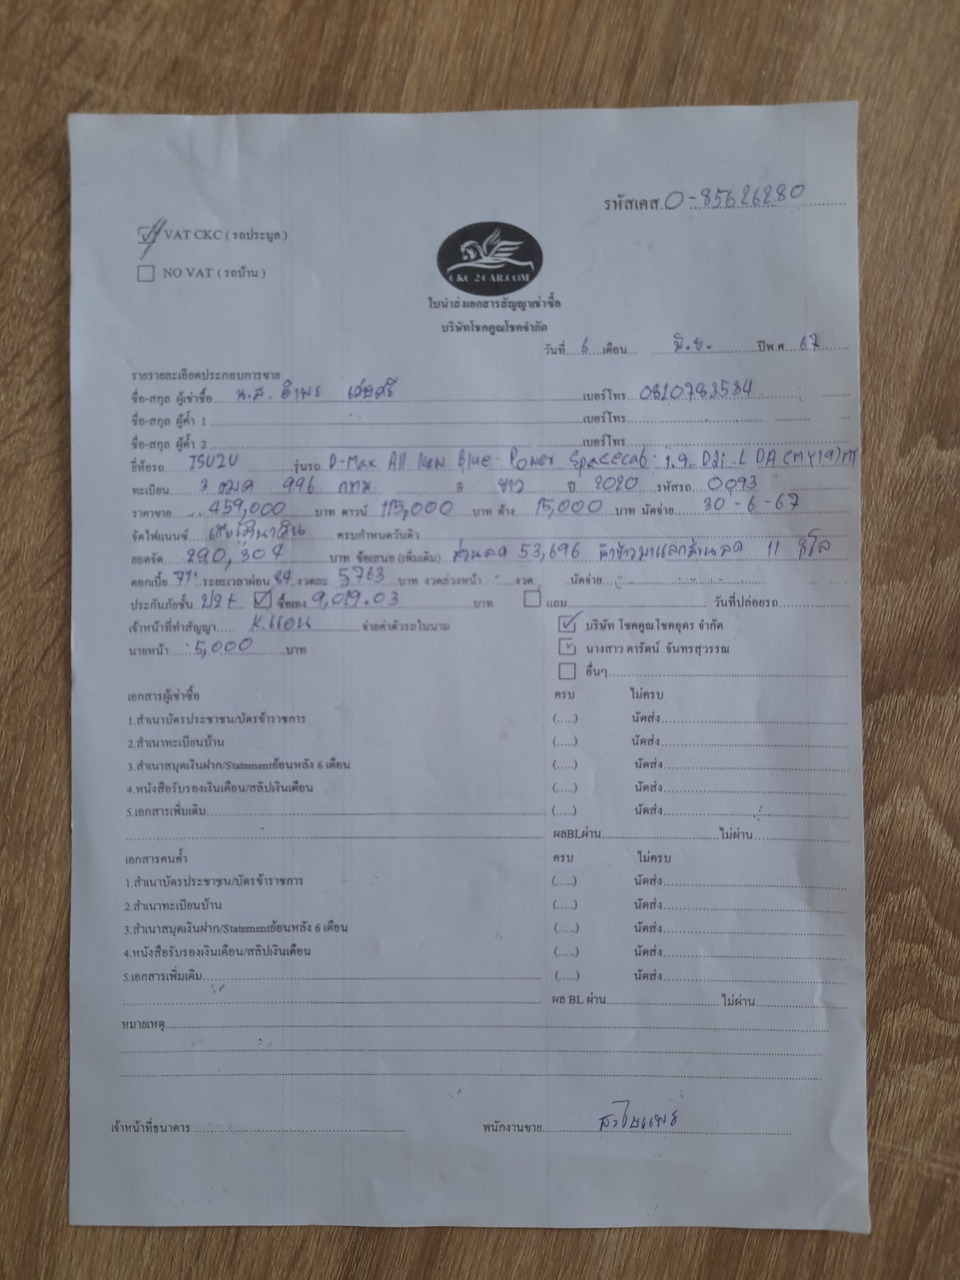 รหัสเคส. 0-85626280
VAT CKC ( รถประมูล )
NO VAT ( รถบ้าน )
CKC 2 CAR.COM
ใบนำส่งเอกสารสัญญาเช่าซื้อ
บริษัทโชคคูณโชคจำกัด
วันที่ 6 เดือน มิ.ย. ปีพ.ศ. 67
รายรายละเอียดประกอบการขาย
ชื่อ-สกุล ผู้เช่าซื้อ น.ส. อำพร เบอร์โทร 0810783534
ชื่อ-สกุล ผู้ค้ำ 1 เบอร์โทร
ชื่อ-สกุล ผู้ค้ำ 2 เบอร์โทร
ยี่ห้อรถ ISUZU รุ่นรถ D-Max All New Blue Power Spacecab 1.9 Ddi L DA (MY19) MT
ทะเบียน 3 ฒฒ 996 กทม. สี ขาว ปี 2020 รหัสรถ 0093
ราคาขาย 459,000 บาท ดาวน์ 115,000 บาท ค้าง 15,000 บาท นัดจ่าย 30-6-67
จัดไฟแนนซ์ ครบกำหนดวันดิว
ยอดจัด 290,304 บาท ข้อเสนอ (เพิ่มเติม) ส่วนลด 53,696 11 กิโล
ดอกเบี้ย ระยะเวลาผ่อน 84 งวดละ 5763 บาท งวดล่วงหน้า - งวด นัดจ่าย
ประกันภัยชั้น ป2+ ซื้อเอง 9,019.03 บาท แถม วันที่ปล่อยรถ
เจ้าหน้าที่ทำสัญญา K.แอน จ่ายค่าตัวรถในนาม บริษัท โชคคูณโชคยุคร จำกัด
นายหน้า 5,000 บาท นางสาว ดารัตน์ จันทรสุวรรณ
อื่นๆ
เอกสารผู้เช่าซื้อ ครบ ไม่ครบ
1.สำเนาบัตรประชาชน/บัตรข้าราชการ (.....) นัดส่ง
2.สำเนาทะเบียนบ้าน (.....) นัดส่ง
3.สำเนาสมุดเงินฝาก/Statementย้อนหลัง 6 เดือน (.....) นัดส่ง
4.หนังสือรับรองเงินเดือน/สลิปเงินเดือน (.....) นัดส่ง
5.เอกสารเพิ่มเติม (.....) นัดส่ง
ผลBLผ่าน ไม่ผ่าน
เอกสารคนค้ำ ครบ ไม่ครบ
1.สำเนาบัตรประชาชน/บัตรข้าราชการ (.....) นัดส่ง
2.สำเนาทะเบียนบ้าน (.....) นัดส่ง
3.สำเนาสมุดเงินฝาก/Statementย้อนหลัง 6 เดือน (.....) นัดส่ง
4.หนังสือรับรองเงินเดือน/สลิปเงินเดือน (.....) นัดส่ง
5.เอกสารเพิ่มเติม (.....) นัดส่ง
ผล BL ผ่าน ไม่ผ่าน
หมายเหตุ
เจ้าหน้าที่ธนาคาร พนักงานขาย